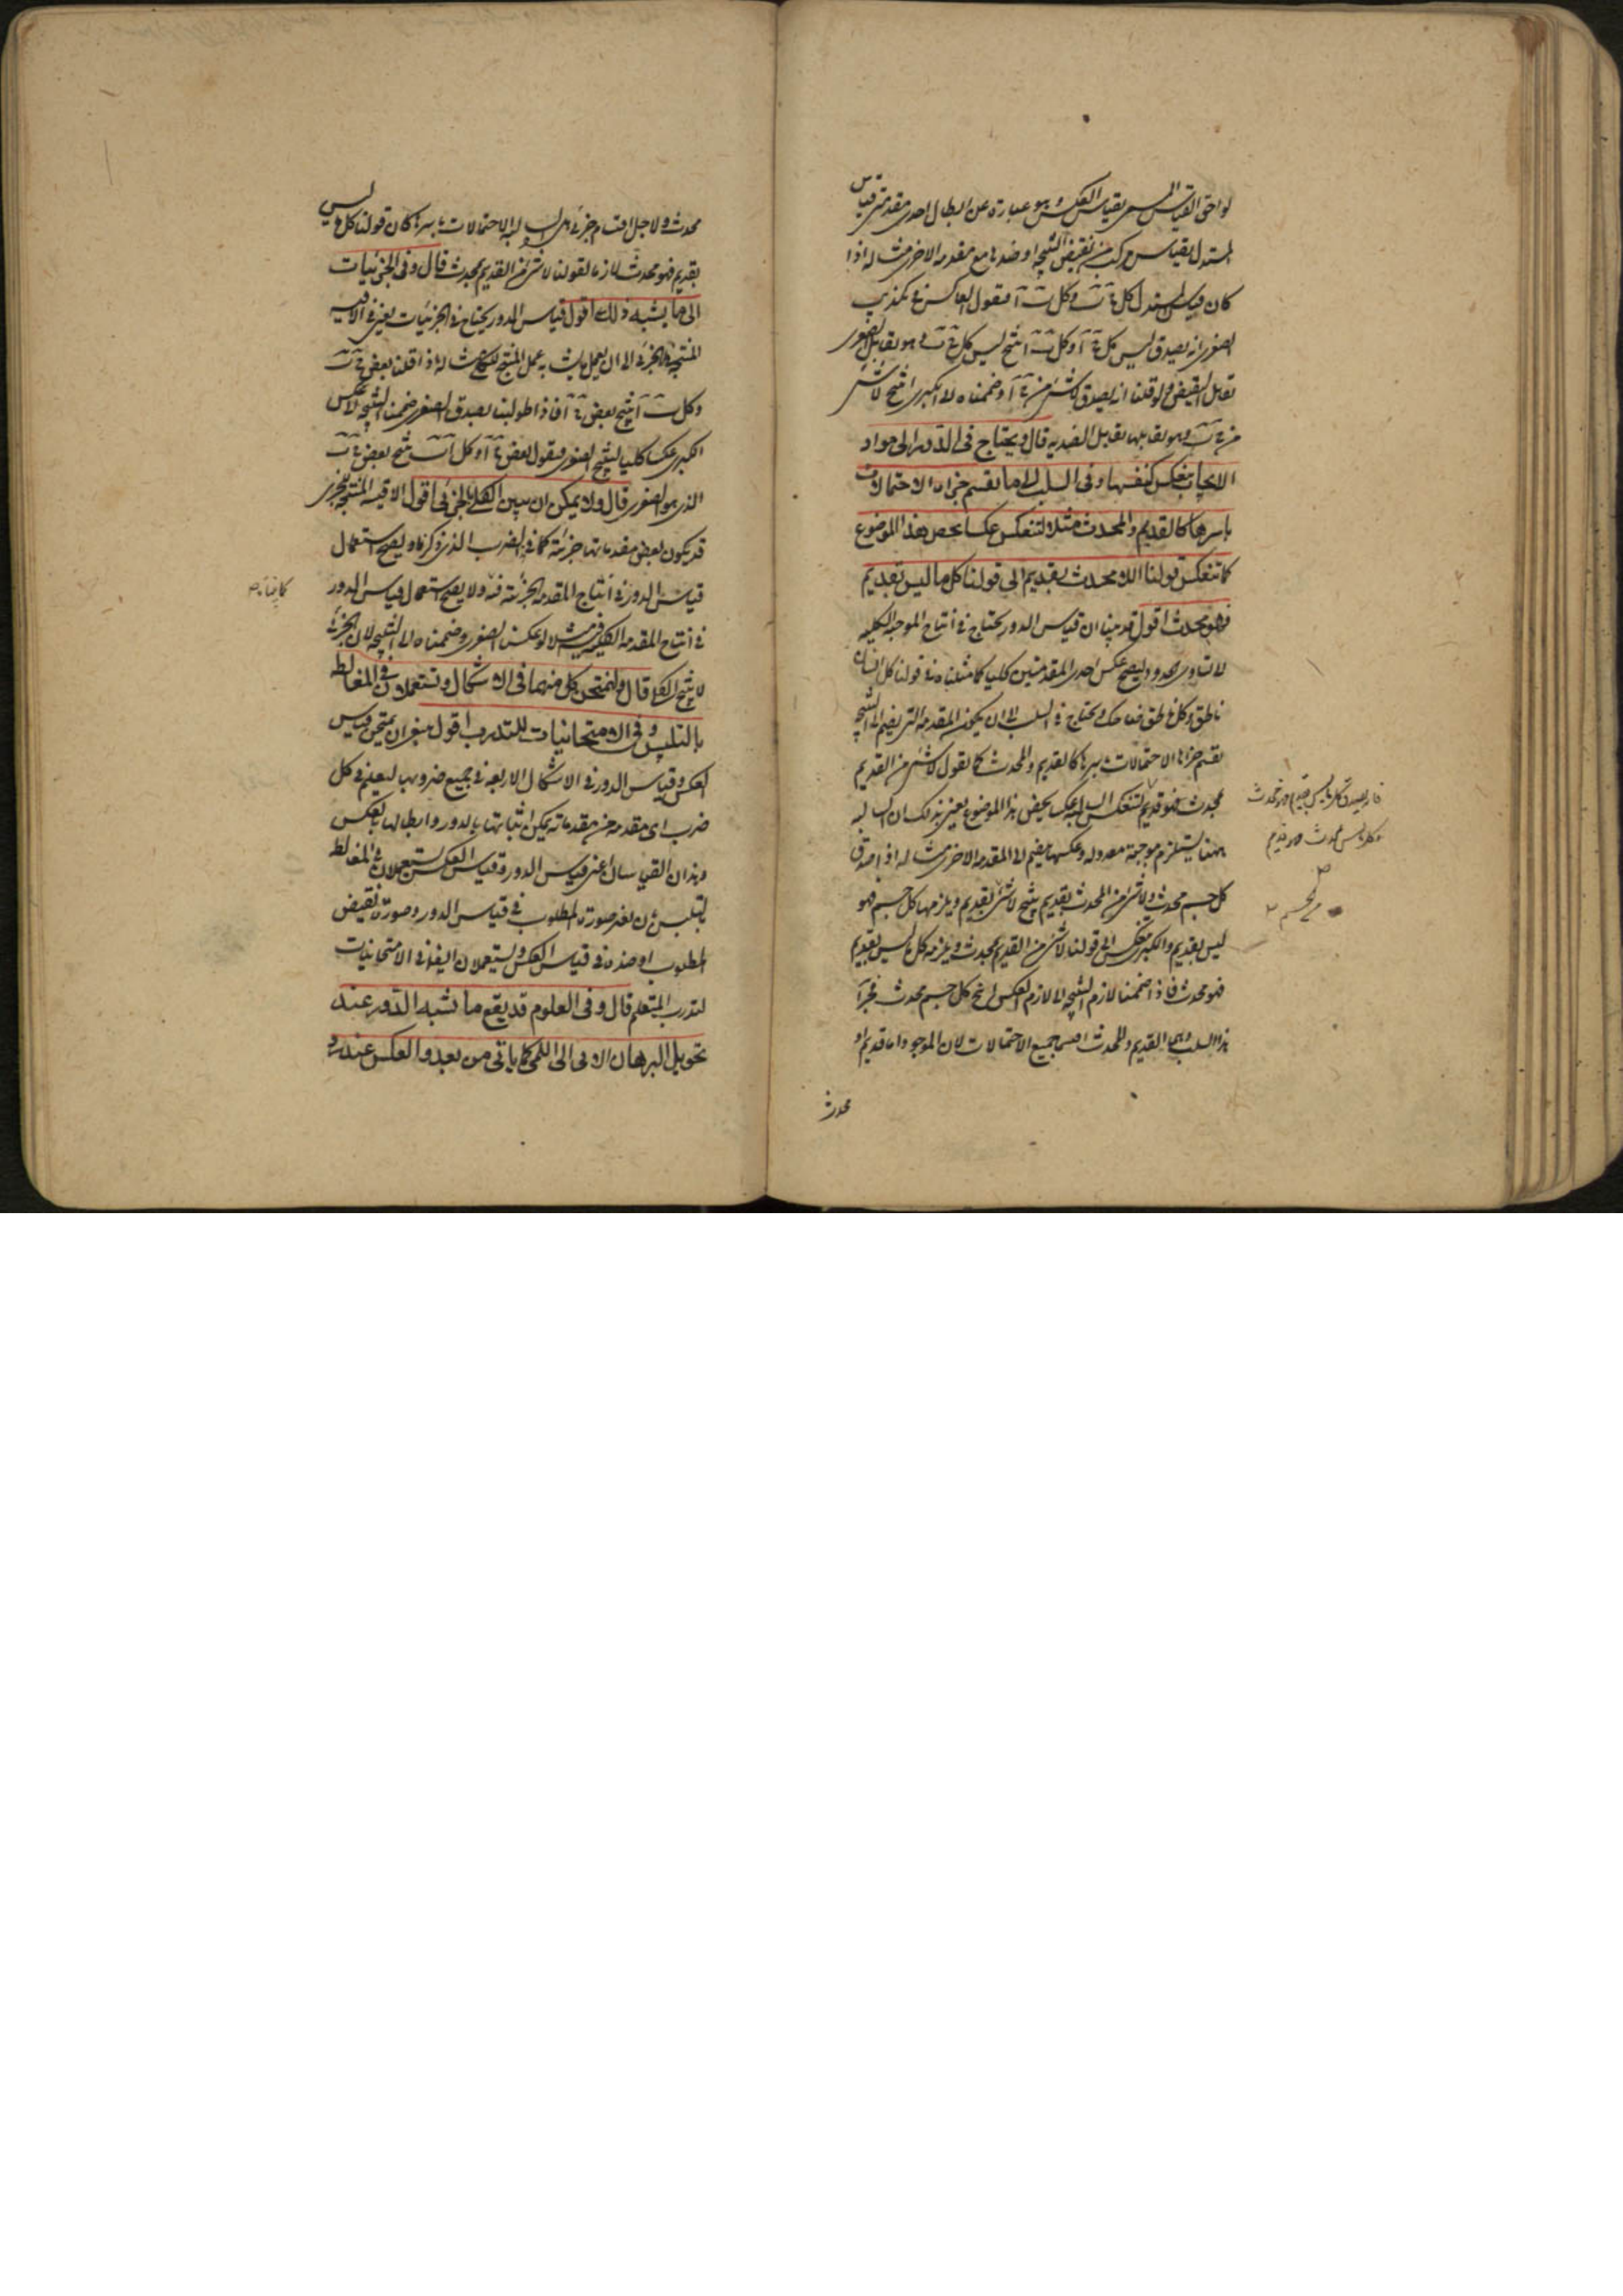 لواحق القياس المسمى بقياس العكس وهو عبارة عن ابطال احدى مقدمتى قياس
المستدل بقياس مركب من نقيض النتيجة او ضدها مع مقدمة الاخرى مثاله اذا
كان قياس المستدل كل ج ب وكل ب آ فنقول العاكس فى تكذيب
الصغرى انه يصدق ليس كل ج آ وكل ب آ ينتج ليس كل ج ب وهو يقابل الصغرى
تقابل النقيض ولو قلنا انه يصدق لا شئ من ج آ وضممناه الى الكبرى انتج لا شئ
من ج ب وهو يقابلها تقابل الضدية قال ويحتاج فى الدور الى مواد
الايجاب ينعكس كنفسها وفى السلب الى ما تقسم جزاه الاحتمالات
باسرها كالقديم والمحدث مثلا لتنعكس عكسا يخص هذا الموضوع
كما تنعكس قولنا الا محدث بقديم الى قولنا كل ما ليس بقديم
فهو محدث اقول قد بينا ان قياس الدور يحتاج فى انتاج الموجبة الكلية
لا تساوى الحدود ليصح عكس احدى المقدمتين كليا كما مثلناه فى قولنا كل انسان
ناطق وكل ناطق ضاحك ويحتاج فى السلب الى ان يكون المقدمة التى يضم الى النتيجة
تقسم جزاها الاحتمالات باسرها كالقديم والمحدث كما نقول لا شئ من القديم
بمحدث فهو قديم لتنعكس السالبة عكسا يخص هذا الموضوع يعنى بذلك ان السالبة
ههنا يستلزم موجبة معدولة وعكسها يضم الى المقدمة الاخرى مثاله اذا صدق
كل جسم محدث ولا شئ من المحدث بقديم ينتج لا شئ بقديم ويلزمها كل جسم فهو
ليس بقديم والكبرى تنعكس الى قولنا لا شئ من القديم بمحدث ويلزمه كل ما ليس بقديم
فهو محدث فاذا ضممنا لازم النتيجة الى لازم العكس انتج كل جسم محدث فجزآ
هذا السلب وهما القديم والمحدث اقتسما جميع الاحتمالات لان الموجود اما قديم او
محدث
فانه يصدق كل ما ليس بقديم فهو محدث
وكل ما ليس بمحدث فهو قديم
من الجسم
محدث ولاجل اقتسام جزئى السالبة الاحتمالات باسرها كان قولنا كل ما ليس
بقديم فهو محدث لازما لقولنا لا شئ من القديم بمحدث قال وفى الجزئيات
الى ما يشبه ذلك اقول قياس الدور يحتاج فى الجزئيات يعنى فى الاقيسة
المنتجة للجزئى الى ان يعمل ما يشبه عمل المنتج للكلى مثاله اذا قلنا بعض ج ب
وكل ب آ ينتج بعض ج آ فاذا طولبنا بصدق الصغرى ضممنا النتيجة الى عكس
الكبرى عكسا كليا لينتج الصغرى فنقول بعض ج آ وكل آ ب ينتج بعض ج ب
الذى هو الصغرى قال ولا يمكن ان يبين الكلى بالجزئى اقول الاقيسة المنتجة للجزئى
قد يكون بعض مقدماتها جزئية كما فى الضرب الذى ذكرناه ويصح استعمال
قياس الدور فى انتاج المقدمة الجزئية فيه ولا يصح استعمال قياس الدور
كما بيناه
فى انتاج المقدمة الكلية فيه مثلا لو عكسنا الصغرى وضممناه الى النتيجة لان الجزئى
لا ينتج الكلى قال ولنمتحن كل منهما فى الاشكال وتستعملان فى المغالط
بالتلبيس وفى الامتحانيات للتدرب اقول ينبغى ان يمتحن قياس
العكس وقياس الدور فى الاشكال الاربعة فى جميع ضروبها ليعلم فى كل
ضرب اى مقدمة من مقدماته يمكن اثباتها بالدور وابطالها بالعكس
وهذان القياسان اعنى قياس الدور وقياس العكس يستعملان فى المغالط
بالتلبيس بان تغير صورة المطلوب فى قياس الدور وصورة نقيض
المطلوب او ضده فى قياس العكس ويستعملان ايضا فى الامتحانيات
لتدرب المتعلم قال وفى العلوم قد يقع ما يشبه الدور عند
تحويل البرهان الانى الى اللمى كما ياتى من بعد والعكس عند رد